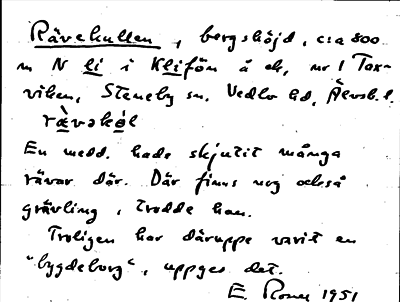 Rävekullen, bergshöjd, c:a 800
m N li i Klifön å ek, nr 1 Tax-
viken, Steneby sn, Vedbo hd, Älvsb. l.
rävəkəl
En medd. hade skjutit många
rävar där. Där finns nog också
grävling, trodde han.
Troligen har däruppe varit en
"bygdeborg", uppges det.
E. 1951